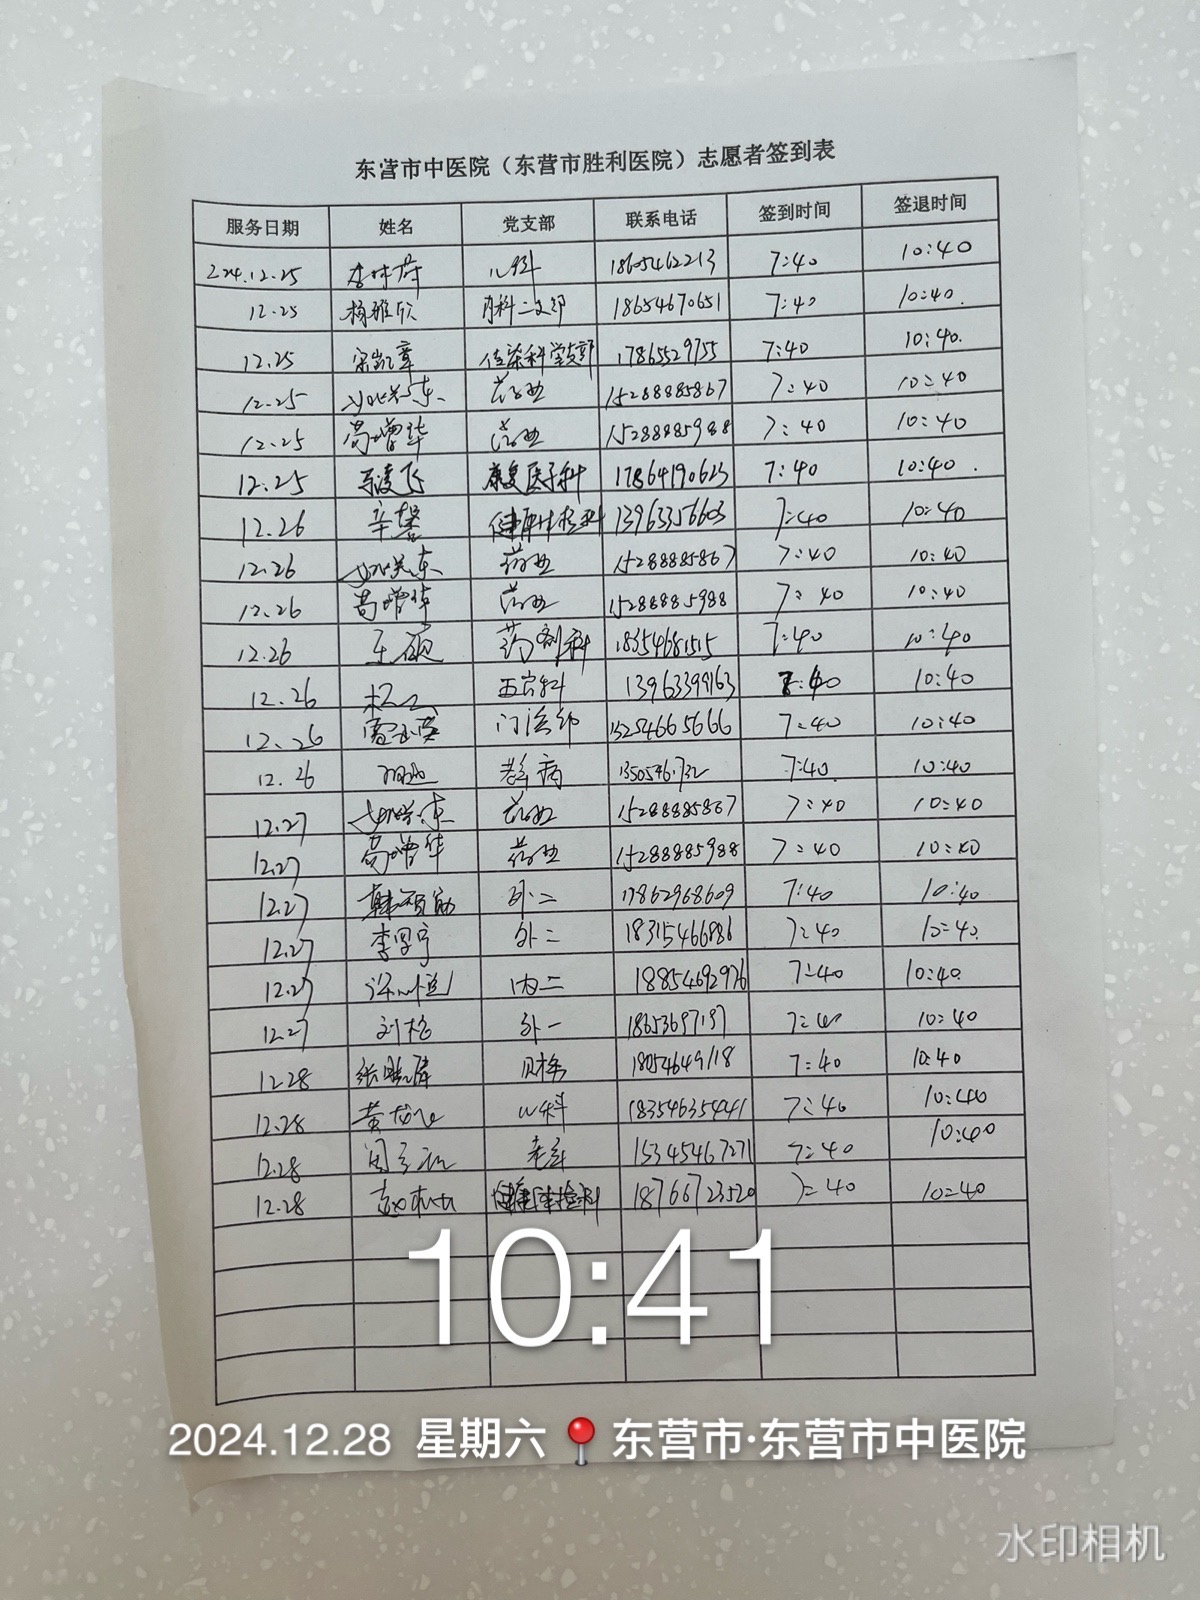 东营市中医院（东营市胜利医院）志愿者签到表
服务日期 姓名 党支部 联系电话 签到时间 签退时间
12.25 儿科 18605462213 7:40 10:40
12.25 杨雅欣 内科二支部 18654670651 7:40 10:40.
12.25 宋凯章 传染科党支部 17865529755 7:40 10:40.
12.25 药业 15288885867 7:40 10:40
12.25 葛增华 药业 15288885988 7:40 10:40
12.25 凌飞 康复医学科 17864190623 7:40 10:40.
12.26 辛馨 健康体检科 13963356603 7:40 10:40
12.26 药业 15288885867 7:40 10:40
12.26 葛增华 药业 15288885988 7:40 10:40
12.26 王硕 药剂科 18354681515 7:40 10:40
12.26 五官科 13963399163 7:40 10:40
12.26 门诊部 13254665666 7:40 10:40
12.26 老年病 7:40 10:40
12.27 药业 15288885867 7:40 10:40
12.27 葛增华 药业 15288885988 7:40 10:40
12.27 韩 外二 17862968609 7:40 10:40
12.27 李 外二 18315466886 7:40 10:40
12.27 内二 18854692976 7:40 10:40
12.27 刘 外一 18653697197 7:40 10:40
12.28 张 18054649118 7:40 10:40
12.28 黄 儿科 18354635441 7:40 10:40
12.28 周 老年 15345467271 7:40 10:40
12.28 赵 健康体检科 18766723520 7:40 10:40
10:41
2024.12.28 星期六 东营市·东营市中医院
水印相机